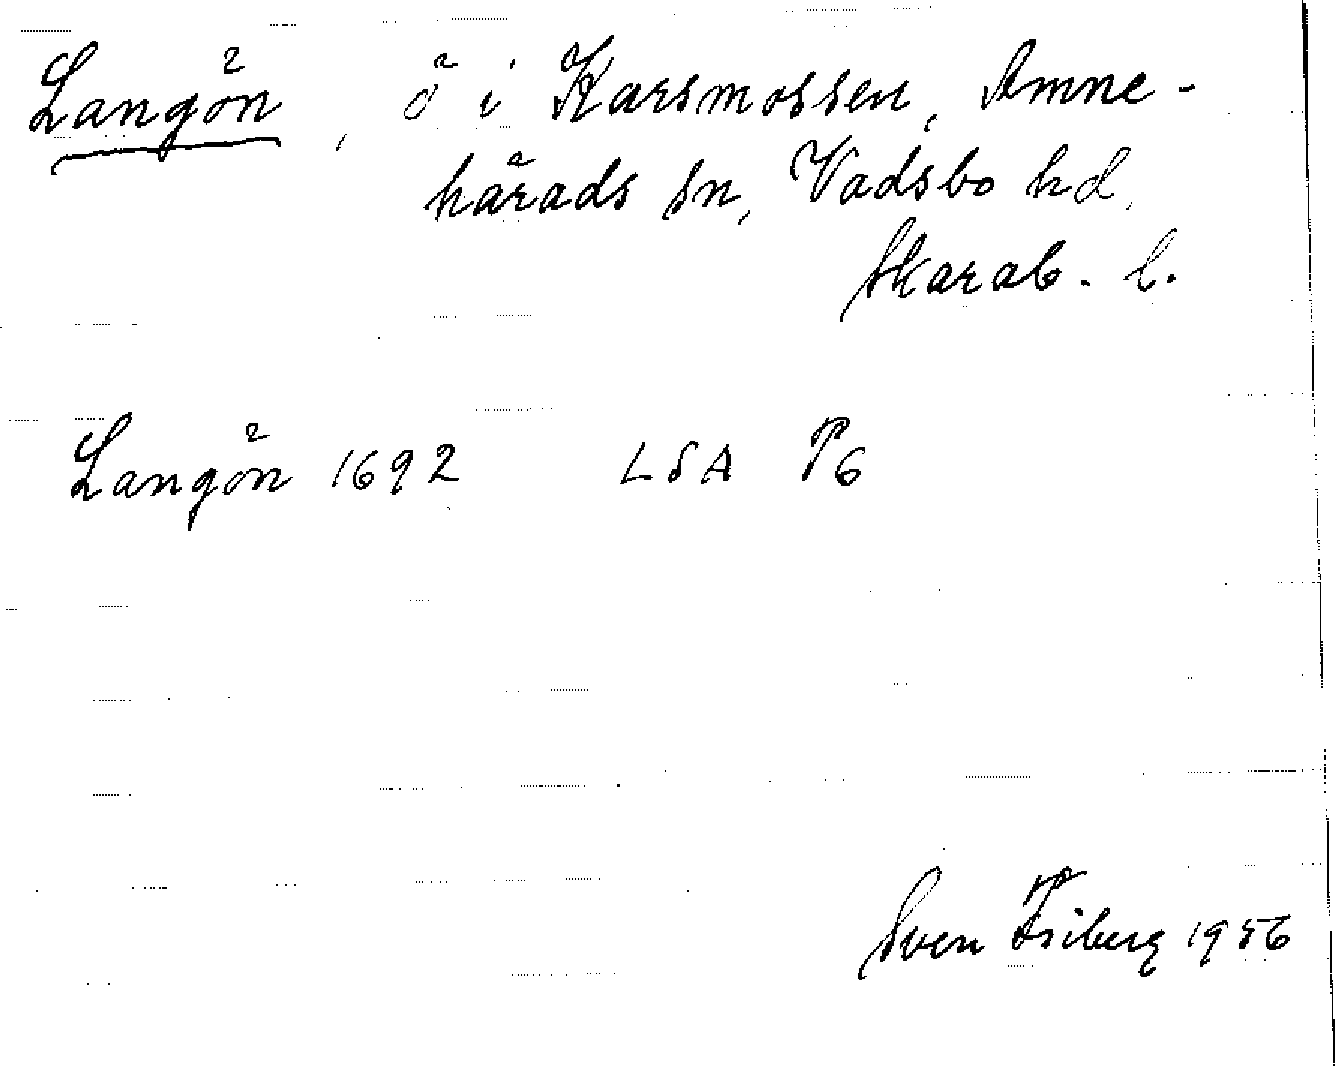 Langön, ö i Karsmossen, Amne-
härads sn, Vadsbo hd,
Skarab. l.
Langön 1692 LSA P6
Sven Friberg 1956